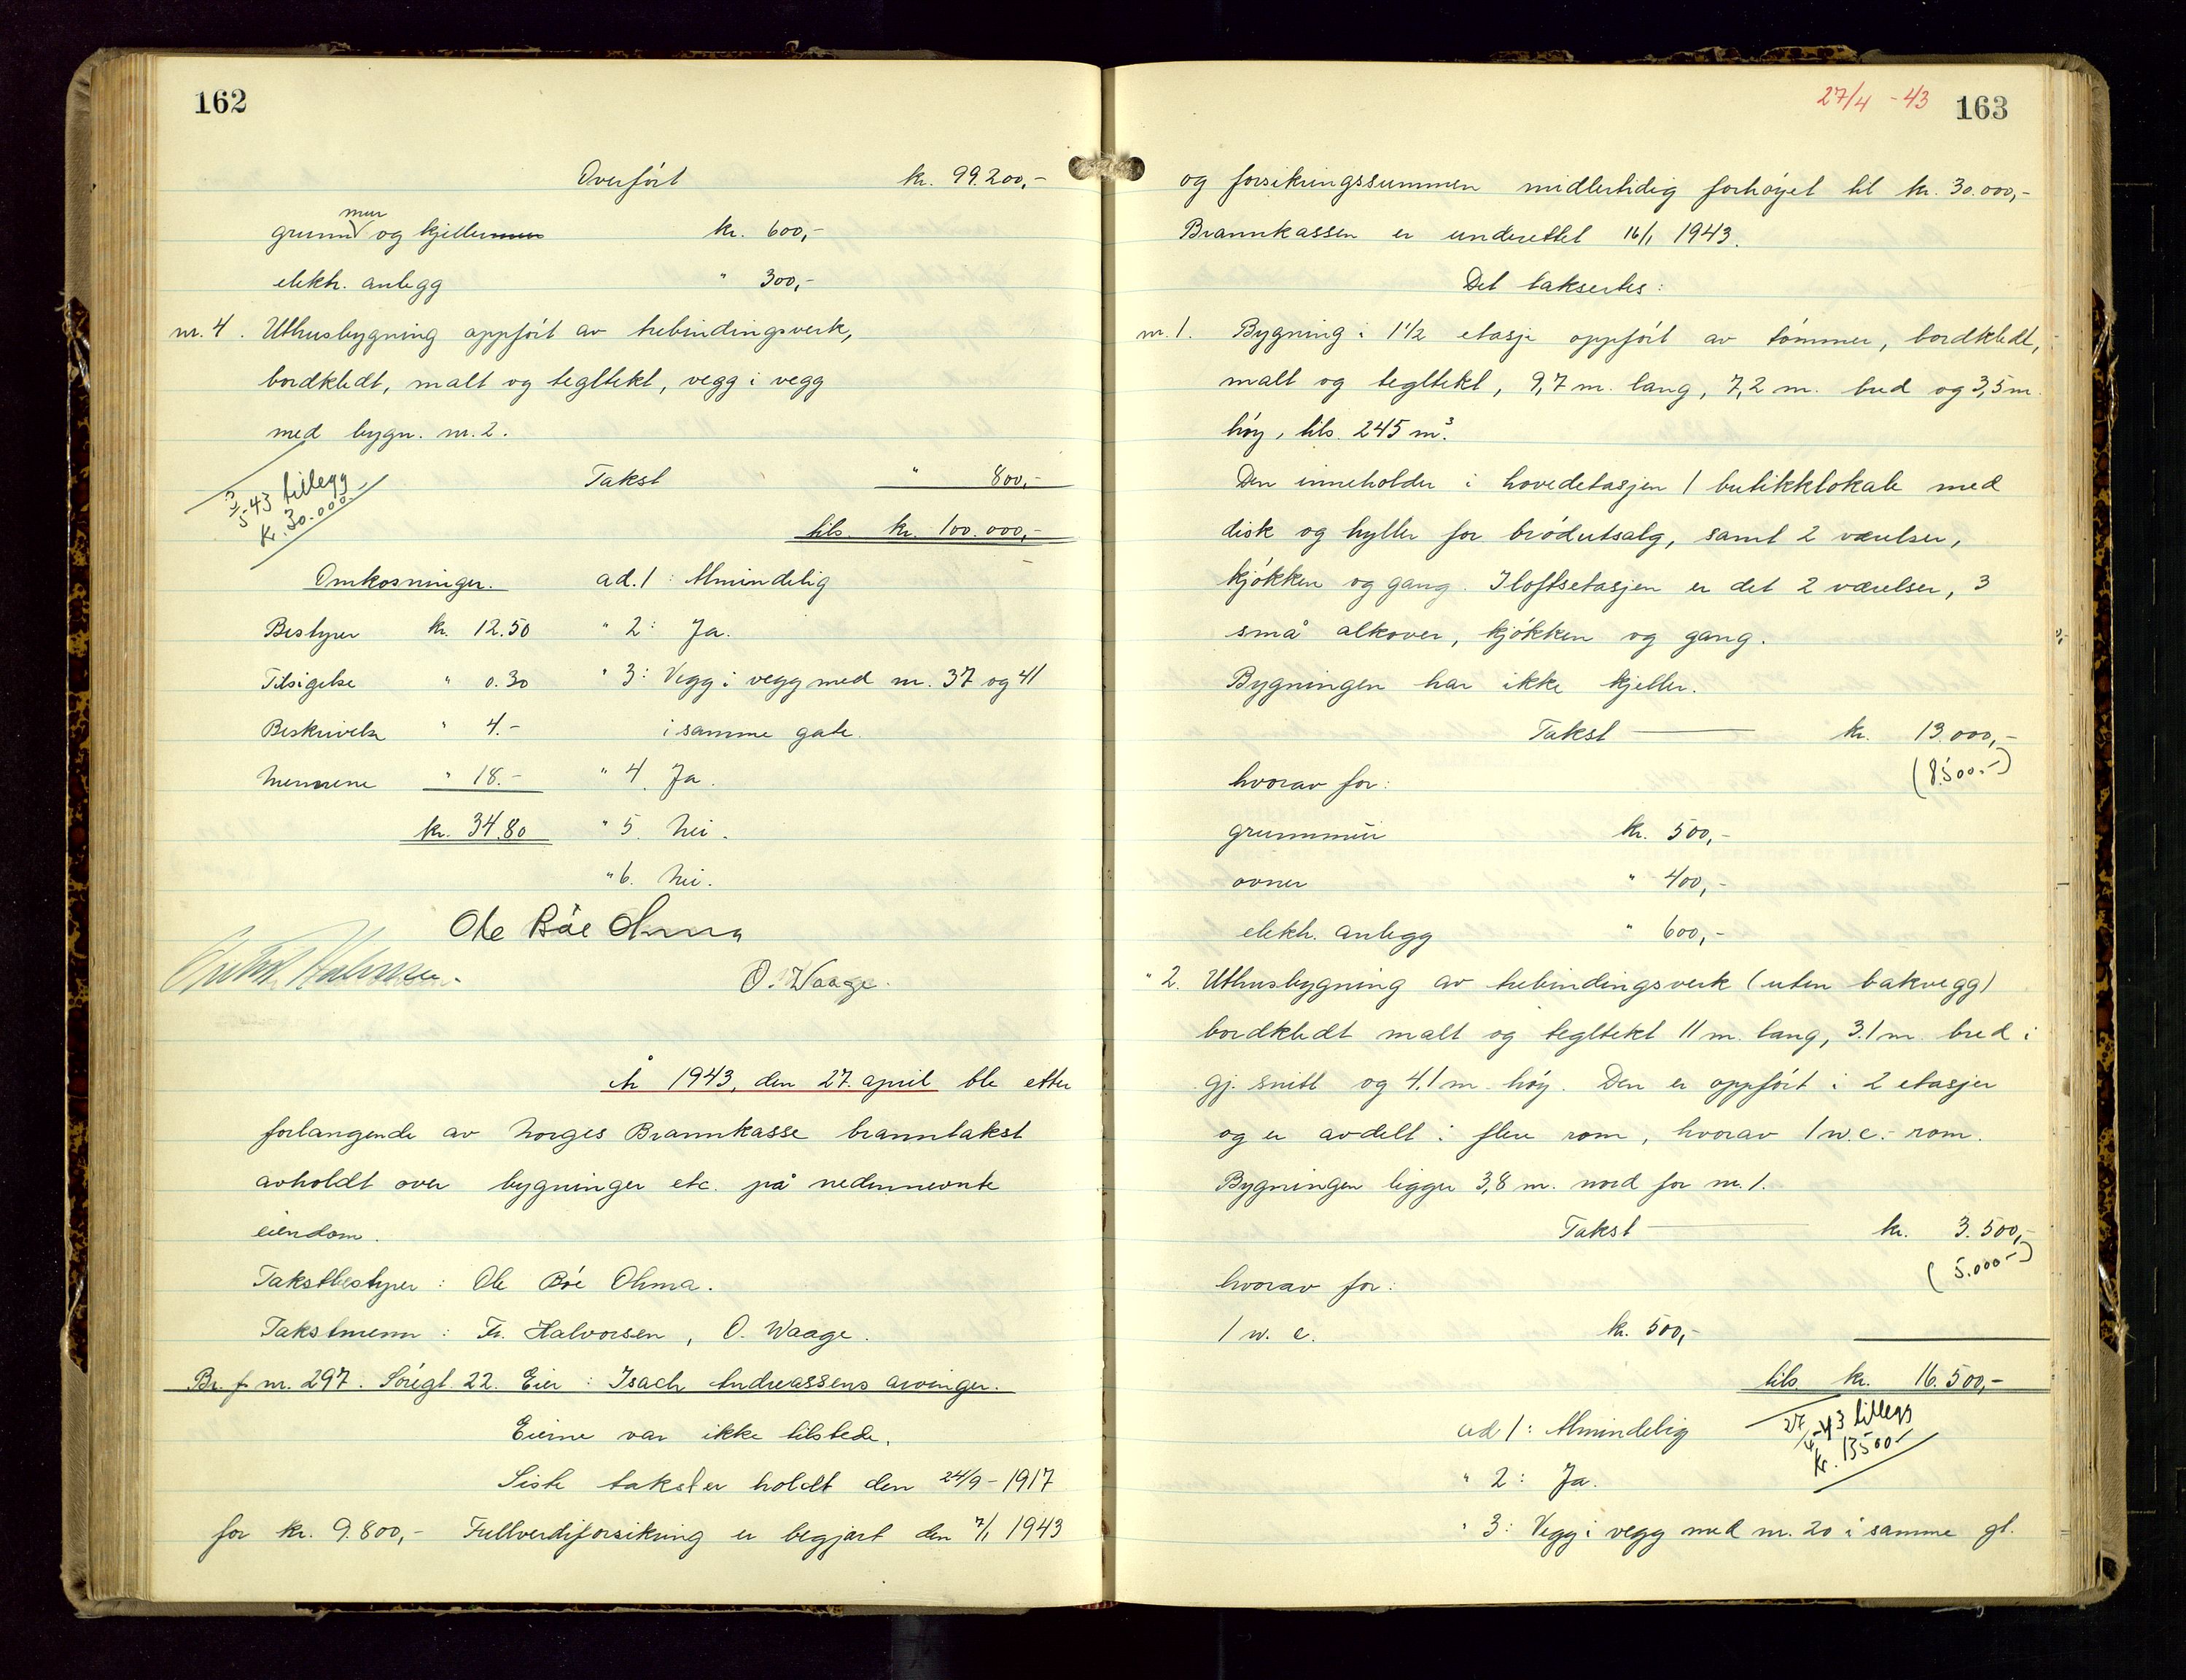 162
Overført kr. 99.200,-
mur
grunn og kjellermur kr. 600,-
elektr. anlegg " 300,-
nr. 4. Uthusbygning oppført av trebindingsverk,
bordkledt, malt og tegltekt, vegg i vegg
med bygn. nr. 2.
Takst " 800,-
3/5-43 tillegg
kr. 30.000-
tils. kr. 100.000,-
Omkosninger. ad. 1: Almindelig
Bestyrer kr. 12.50 " 2: Ja.
Tilsigelse " 0.30 " 3: Vegg i vegg med nr. 37 og 41
Beskrivelse " 4.- i samme gate.
Mennene " 18.- " 4. Ja.
kr. 34.80 " 5. Nei.
" 6. Nei.
Ole Bøe Ohma
Halvorsen.
O. Waage.
År 1943, den 27. april ble etter
forlangende av Norges Brannkasse branntakst
avholdt over bygninger etc. på nedennevnte
eiendom.
Takstbestyrer: Ole Bøe Ohma.
Takstmenn: Fr. Halvorsen, O. Waage.
Br. f. nr. 297. Søregt. 22. Eier: Isach Andreassens arvinger.
Eierne var ikke tilstede.
Siste takst er holdt den 24/9-1917
for kr. 9.800,- Fullverdiforsikring er begjært den 7/1 1943
27/4-43 163
og forsikringssummen midlertidig forhøyet til kr. 30.000,-
Brannkassen er underettet 16/1 1943.
Det taksertes:
nr. 1. Bygning i 1 1/2 etasje oppført av tømmer, bordkledt,
malt og tegltekt, 9,7 m. lang, 7,2 m. bred og 3,5 m.
høy, tils. 245 m³.
Den inneholder i hovedetasjen 1 butikklokale med
disk og hyller for brødutsalg, samt 2 værelser,
kjøkken og gang. I loftsetasjen er det 2 værelser, 3
små alkover, kjøkken og gang.
Bygningen har ikke kjeller.
Takst kr. 13.000,-
(8.500.-)
hvorav for:
grunnmur kr. 500,-
ovner " 400,-
elektr. anlegg " 600,-
" 2. Uthusbygning av trebindingsverk (uten bakvegg)
bordkledt malt og tegltekt 11 m. lang, 3.1 m. bred i
gj. snitt og 4.1 m. høy. Den er oppført i 2 etasjer
og er avdelt i flere rom, hvorav 1 w.c.-rom.
Bygningen ligger 3,8 m. nord for nr. 1.
Takst kr. 3.500,-
(5.000-)
hvorav for:
1 w. c. kr. 500,-
tils. kr. 16.500,-
27/4-43 tillegg
kr. 13500-
ad 1: Almindelig
" 2: Ja.
" 3: Vegg i vegg med nr. 20 i samme gt.